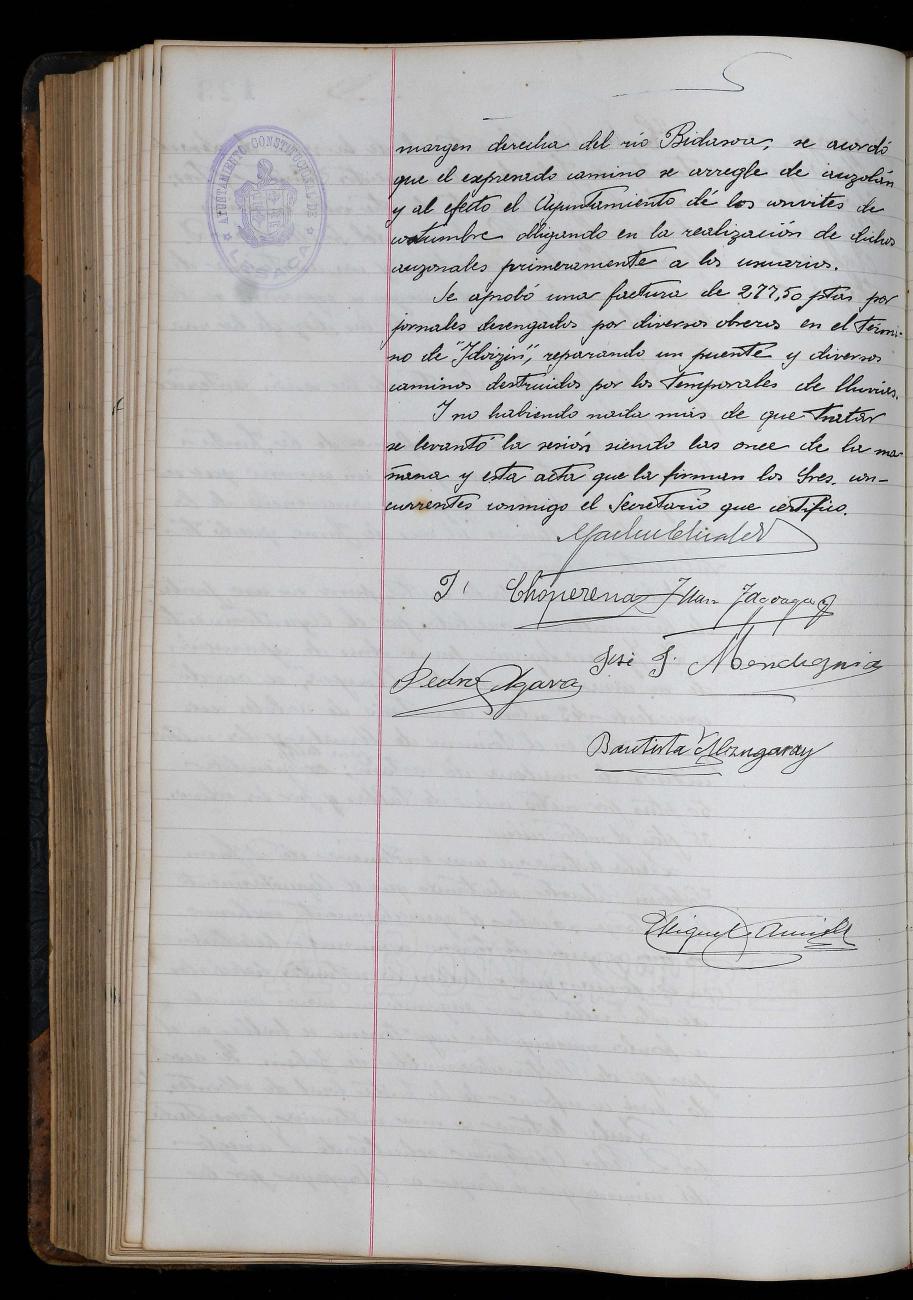 AYUNTAMIENTO CONSTITUCIONAL DE
LESACA
margen derecha del río Bidasoa, se acordó
que el expresado camino se arregle de auzolán
y al efecto el Ayuntamiento dé los convites de
costumbre obligando en la realización de dichos
auzonales primeramente a los usuarios.
Se aprobó una factura de 277,50 ptas por
jornales devengados por diversos obreros en el térmi-
no de reparando un puente y diversos
caminos destruidos por los temporales de lluvias.
Y no habiendo nada más de que tratar
se levantó la sesión siendo las once de la ma-
ñana y esta acta que la firman los Sres. con-
currentes conmigo el Secretario que certifico.
Choperena Juan
José J. Mendeguia
Pedro
Bautista
Miguel